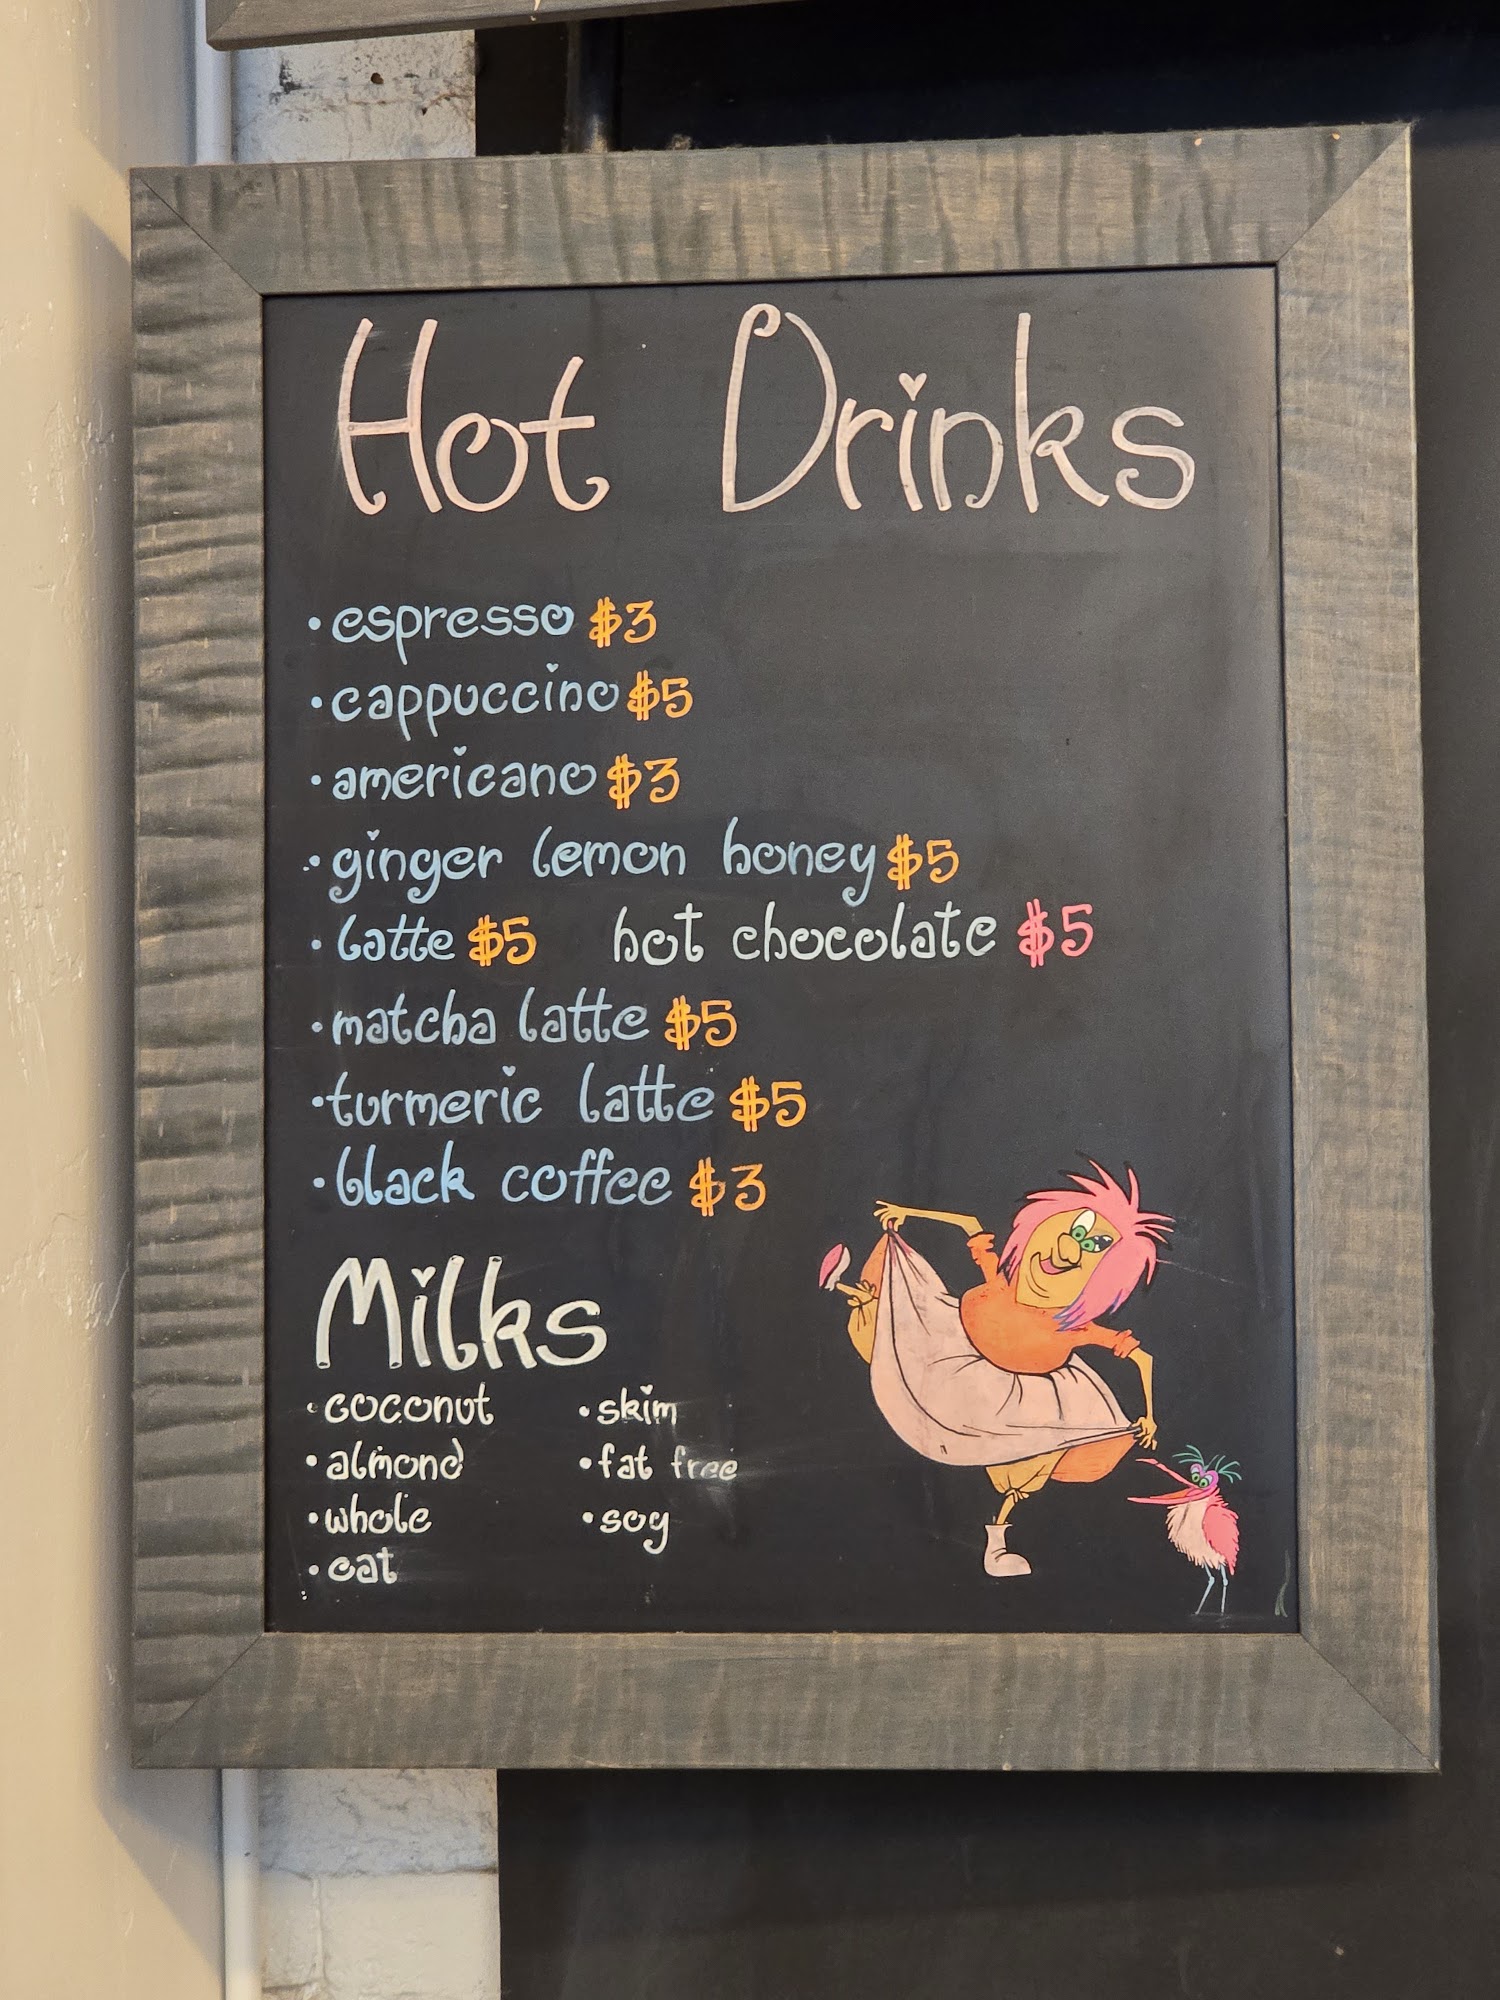 Hot Drinks
· espresso $3
· cappuccino $5
· americano $3
· ginger lemon honey $5
· latte $5 hot chocolate $5
· matcha latte $5
· turmeric latte $5
· black coffee $3
Milks
· coconut
· almond
· whole
· oat
· skim
· fat free
· soy